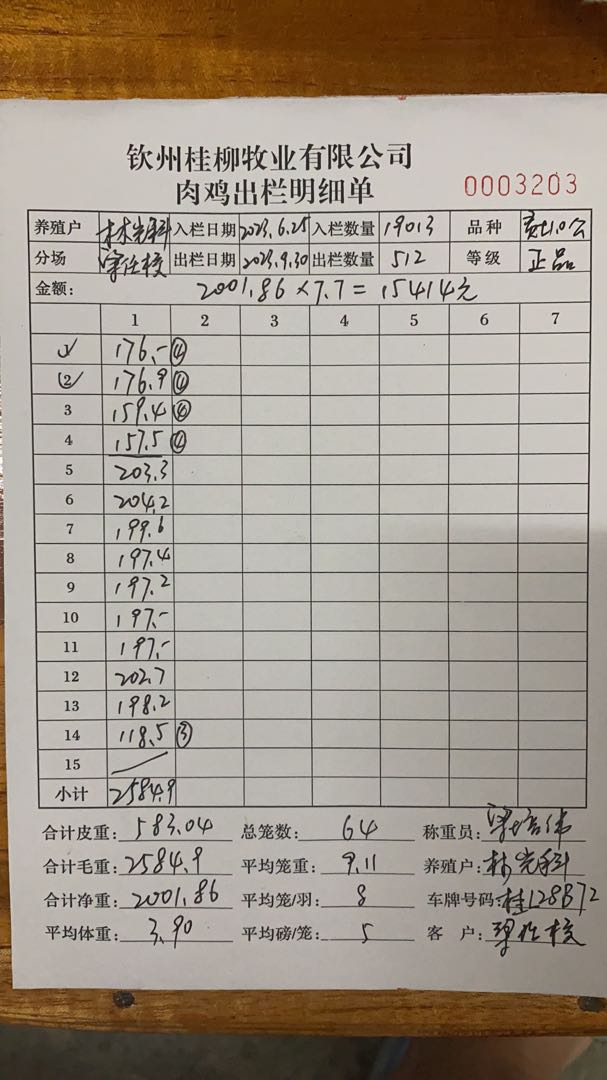 钦州桂柳牧业有限公司
肉鸡出栏明细单 0003203
养殖户 林光科 入栏日期 2023.6.25 入栏数量 19013 品种
分场 出栏日期 2023.9.30 出栏数量 512 等级 正品
金额: 2001.86×7.7=15414元
1 2 3 4 5 6 7
1 176.- ④
2 176.9 ④
3 159.4 ④
4 157.5 ④
5 203.3
6 204.2
7 199.6
8 197.4
9 197.2
10 197.-
11 197.-
12 202.7
13 198.2
14 118.5 ③
15
小计 2584.9
合计皮重: 583.04 总笼数: 64 称重员:
合计毛重: 2584.9 平均笼重: 9.11 养殖户: 林光科
合计净重: 2001.86 平均笼/羽: 8 车牌号码: 桂128B72
平均体重: 3.90 平均磅/笼: 5 客 户: